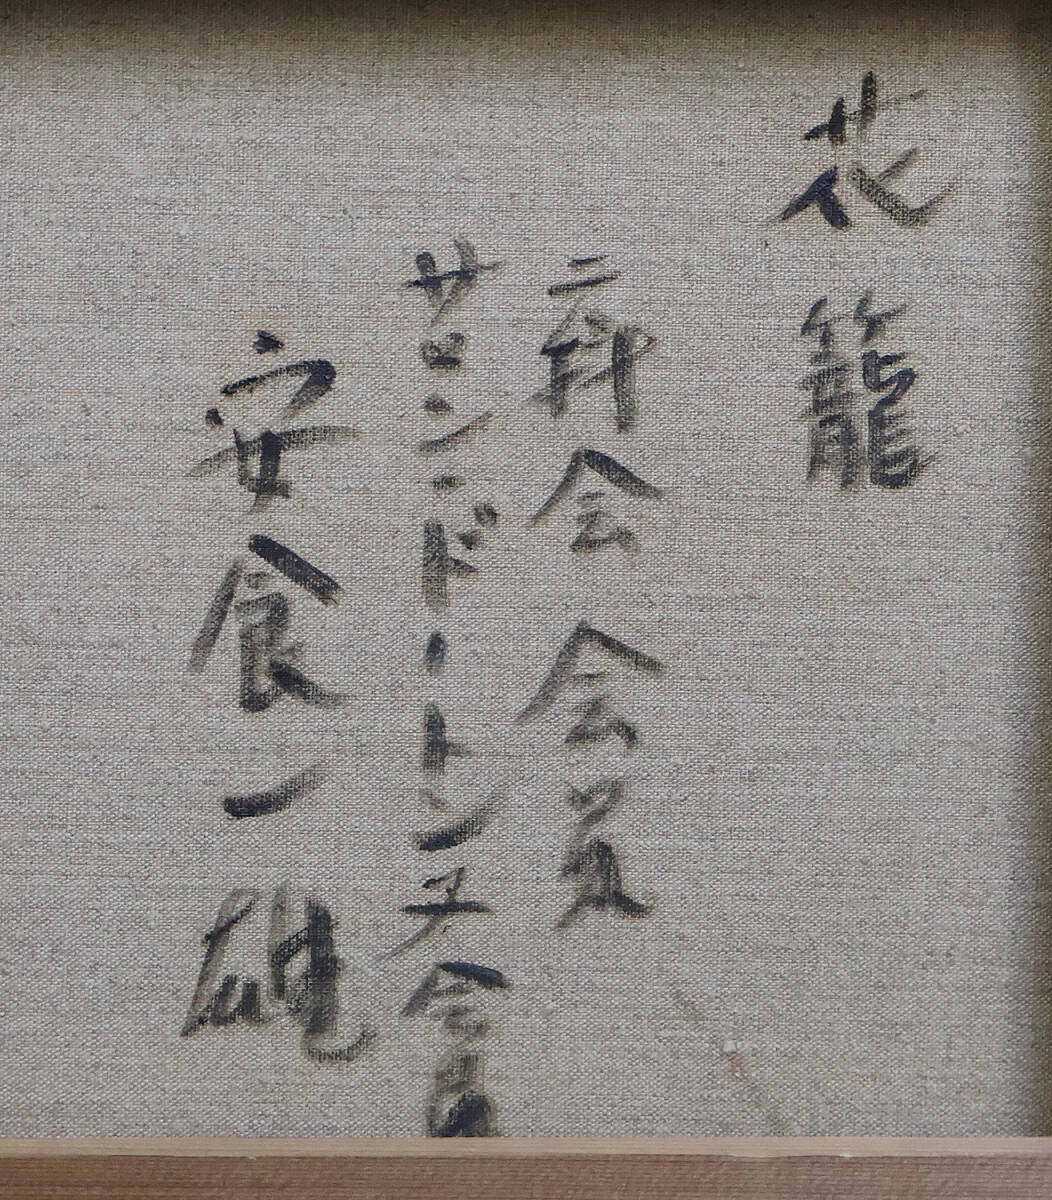 花籠
三軌会会員
サロン・ドートンヌ会員
安食一雄